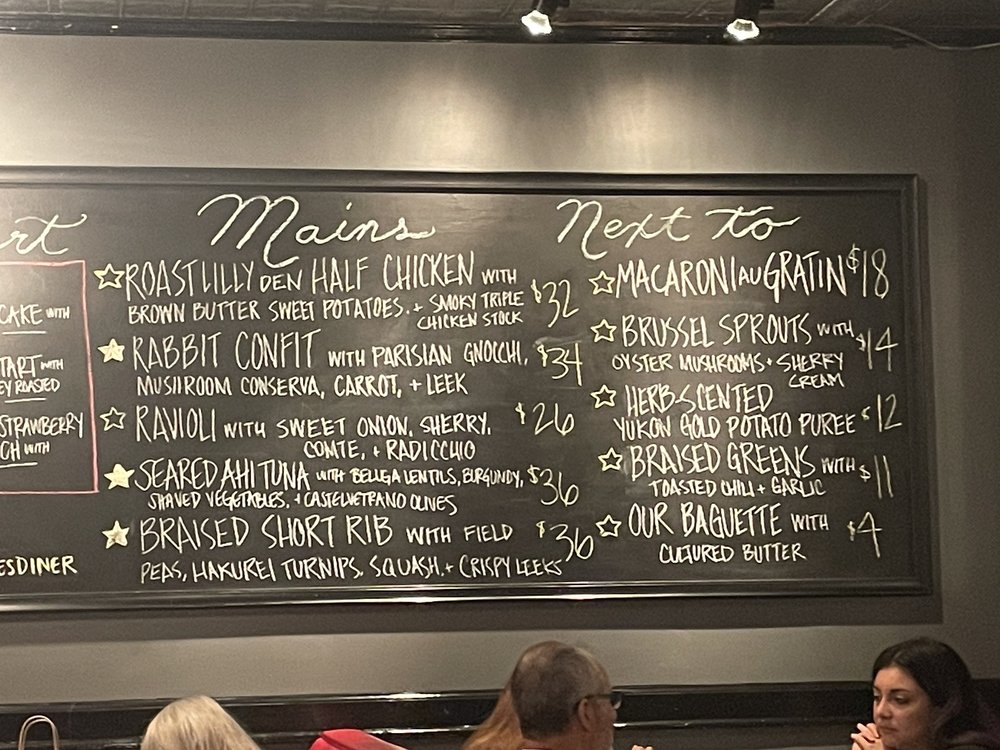 rt
CAKE WITH
TART WITH
EY ROASTED
STRAWBERRY
CH WITH
ESDINER
Mains
ROAST LILLY DEN HALF CHICKEN WITH
BROWN BUTTER SWEET POTATOES, + SMOKY TRIPLE $32
CHICKEN STOCK
RABBIT CONFIT WITH PARISIAN GNOCCHI, $34
MUSHROOM CONSERVA, CARROT, + LEEK
RAVIOLI WITH SWEET ONION, SHERRY, $26
COMTE, + RADICCHIO
SEARED AHI TUNA WITH BELUGA LENTILS, BURGUNDY, $36
SHAVED VEGETABLES, + CASTELVETRANO OLIVES
BRAISED SHORT RIB WITH FIELD $36
PEAS, HAKUREI TURNIPS, SQUASH, + CRISPY LEEKS
Next to
MACARONI AU GRATIN $18
BRUSSEL SPROUTS WITH $14
OYSTER MUSHROOMS + SHERRY
CREAM
HERB-SCENTED
YUKON GOLD POTATO PUREE $12
BRAISED GREENS WITH $11
TOASTED CHILI + GARLIC
OUR BAGUETTE WITH $4
CULTURED BUTTER